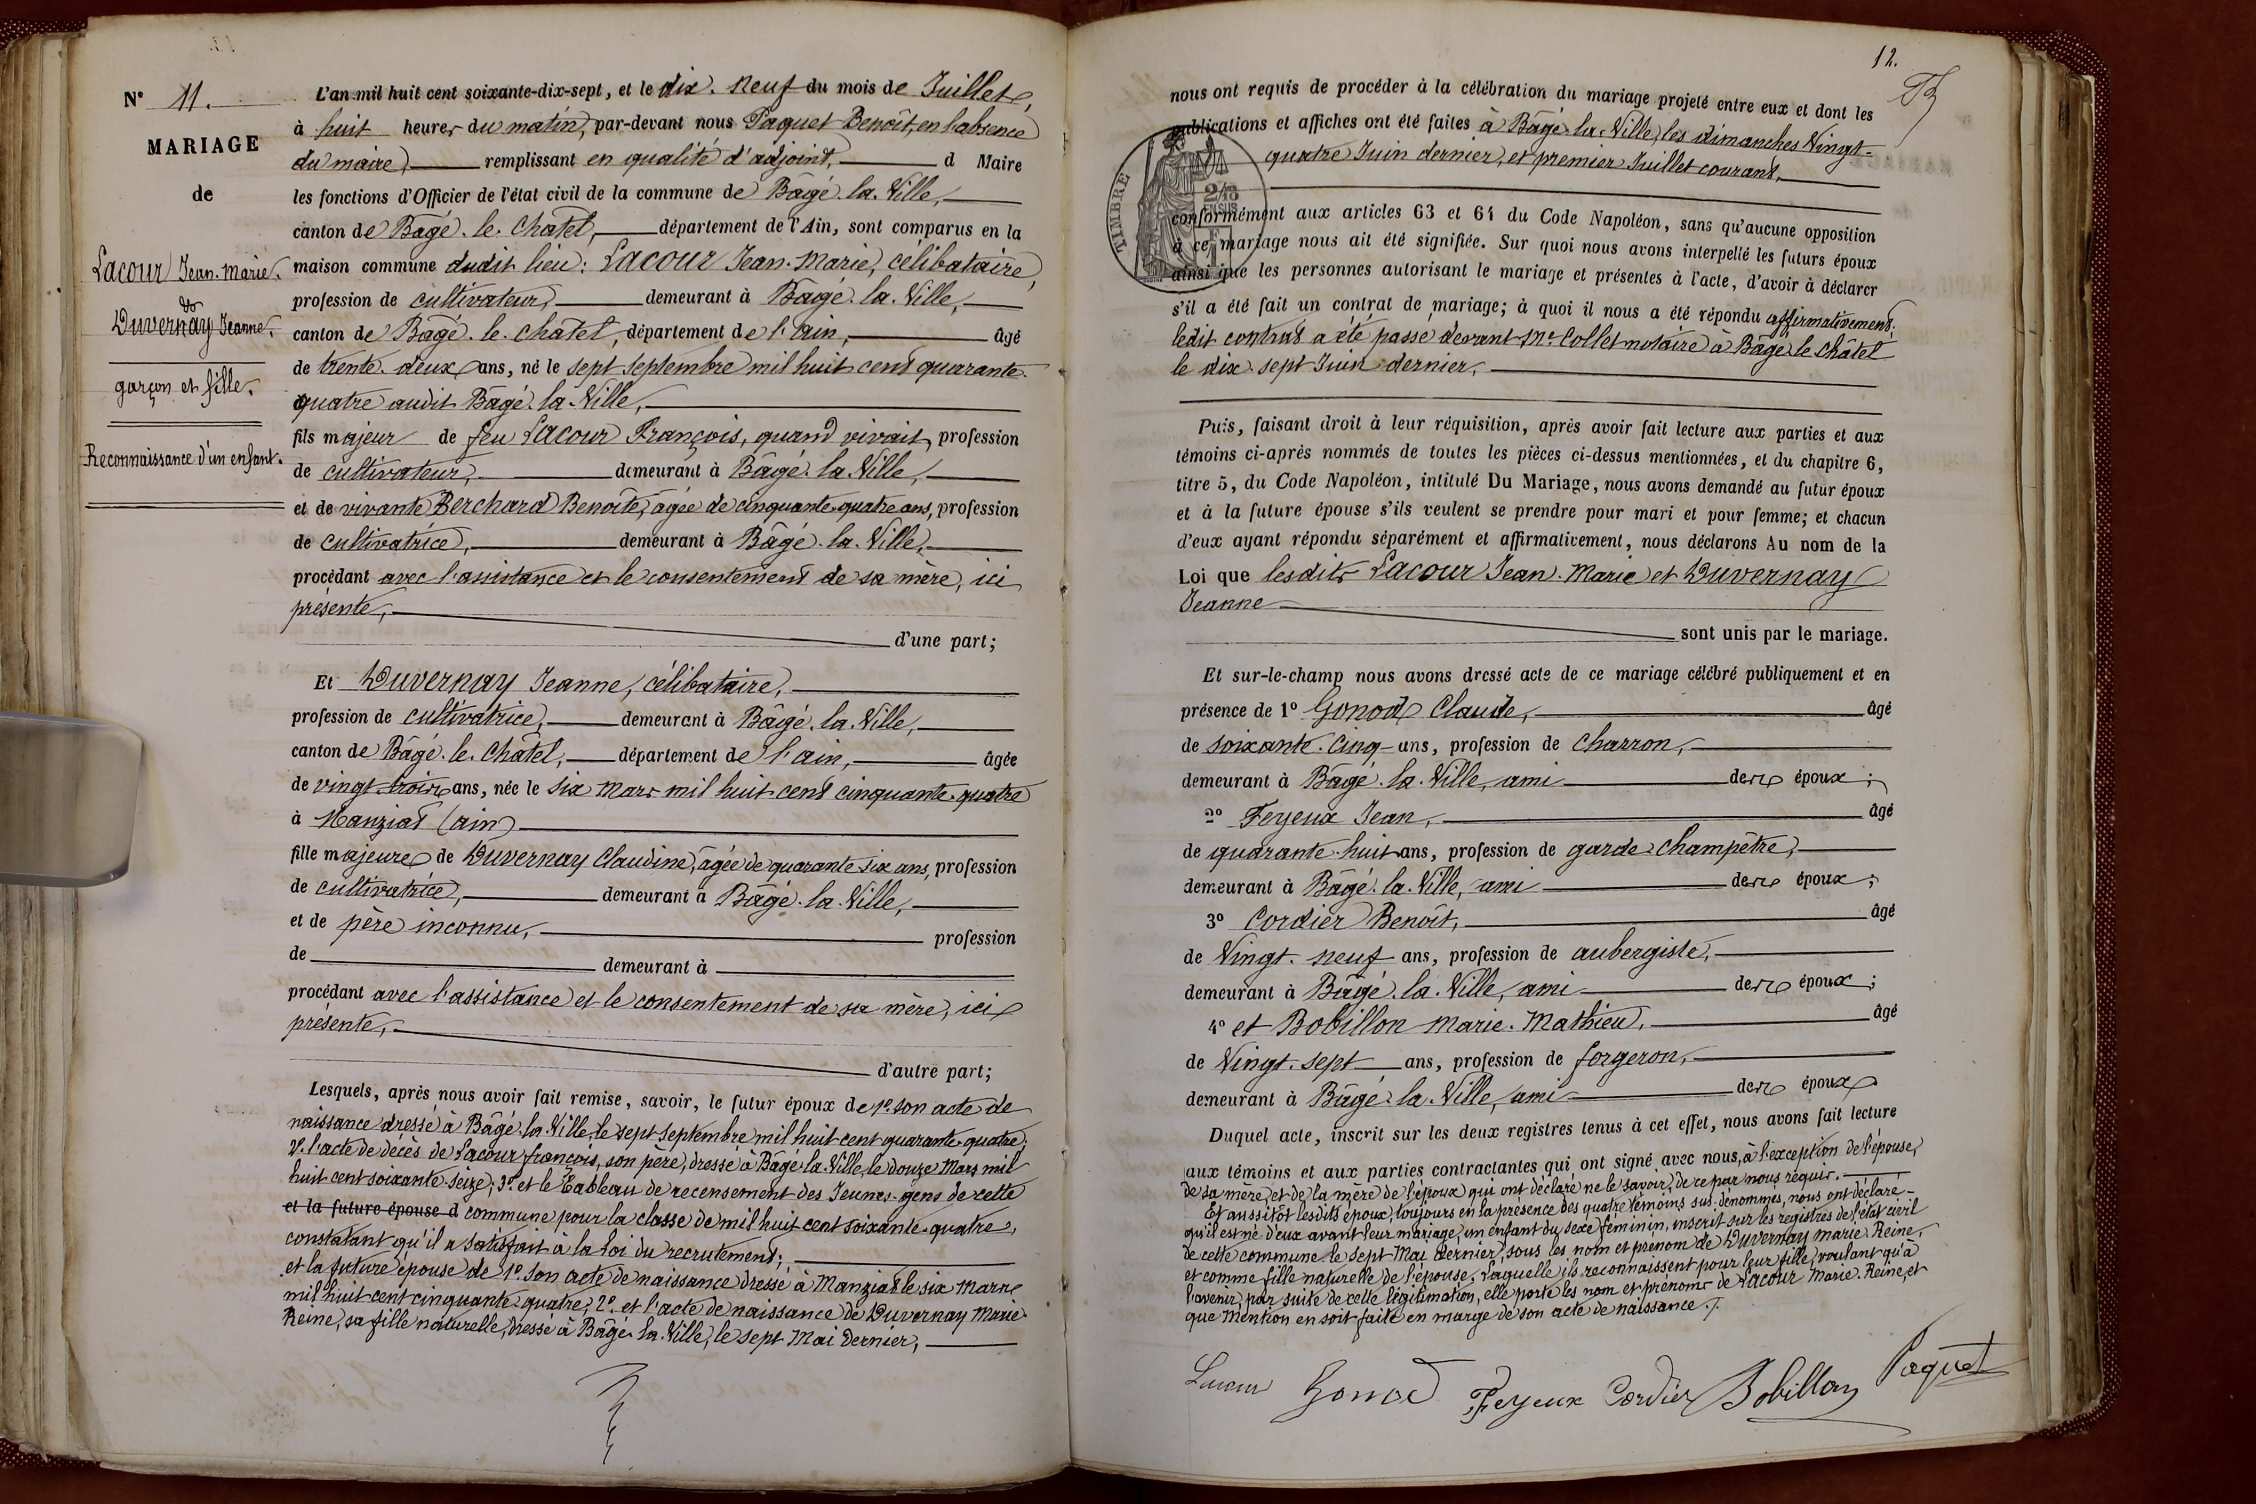 N° 11.
MARIAGE
de
Lacour Jean-Marie.
&
Duvernay Jeanne,
garçon et fille.
Reconnaissance d'un enfant.
L'an mil huit cent soixante-dix-sept, et le dix-neuf du mois de Juillet,
à huit heures du matin, par-devant nous Paquet Benoît, en l'absence
du maire, remplissant en qualité d'adjoint, d Maire
les fonctions d'Officier de l'état civil de la commune de Bâgé-la-Ville,
canton de Bâgé-le-Châtel, département de l'Ain, sont comparus en la
maison commune dudit lieu: Lacour Jean-Marie, célibataire,
profession de cultivateur, demeurant à Bâgé-la-Ville,
canton de Bâgé-le-Châtel, département de l'ain, âgé
de trente-deux ans, né le sept Septembre mil huit cent quarante-
quatre audit Bâgé-la-Ville,
fils majeur de feu Lacour François, quand vivait, profession
de cultivateur, demeurant à Bâgé-la-Ville,
et de vivante Berchard Benoîte, âgée de cinquante-quatre ans, profession
de cultivatrice, demeurant à Bâgé-la-Ville,
procédant avec l'assistance et le consentement de sa mère, ici
présente,
d'une part;
Et Duvernay Jeanne, célibataire,
profession de cultivatrice, demeurant à Bâgé-la-Ville,
canton de Bâgé-le-Châtel, département de l'ain, âgée
de vingt-trois ans, née le six Mars mil huit cent cinquante-quatre
à Manziat (ain)
fille majeure de Duvernay Claudine, âgée de quarante six ans, profession
de cultivatrice, demeurant à Bâgé-la-Ville,
et de père inconnu, profession
de demeurant à
procédant avec l'assistance et le consentement de sa mère, ici
présente,
d'autre part;
Lesquels, après nous avoir fait remise, savoir, le futur époux de 1° son acte de
naissance dressé à Bâgé-la-Ville, le sept Septembre mil huit cent quarante-quatre;
2° l'acte de décès de Lacour françois, son père, dressé à Bâgé-la-Ville, le douze Mars mil
huit cent soixante-seize; 3° et le Tableau de recensement des Jeunes-gens de cette
et la future épouse d commune pour la classe de mil huit cent soixante-quatre,
constatant qu'il a satisfait à la loi du recrutement;
et la future épouse de 1° son acte de naissance dressé à Manziat le six Mars
mil huit cent cinquante-quatre; 2° et l'acte de naissance de Duvernay Marie
Reine, sa fille naturelle, dressé à Bâgé-la-Ville, le sept Mai dernier,
12.
nous ont requis de procéder à la célébration du mariage projeté entre eux et dont les
publications et affiches ont été faites à Bâgé-la-Ville, les dimanches Vingt-
quatre Juin dernier, et premier Juillet courant,
TIMBRE
conformément aux articles 63 et 64 du Code Napoléon, sans qu'aucune opposition
à ce mariage nous ait été signifiée. Sur quoi nous avons interpellé les futurs époux
ainsi que les personnes autorisant le mariage et présentes à l'acte, d'avoir à déclarer
s'il a été fait un contrat de mariage; à quoi il nous a été répondu affirmativement;
ledit contrat a été passé devant Me Collet notaire à Bâgé le Châtel
le dix-sept Juin dernier,
Puis, faisant droit à leur réquisition, après avoir fait lecture aux parties et aux
témoins ci-après nommés de toutes les pièces ci-dessus mentionnées, et du chapitre 6,
titre 5, du Code Napoléon, intitulé Du Mariage, nous avons demandé au futur époux
et à la future épouse s'ils veulent se prendre pour mari et pour femme; et chacun
d'eux ayant répondu séparément et affirmativement, nous déclarons Au nom de la
Loi que lesdits Lacour Jean-Marie et Duvernay
Jeanne
sont unis par le mariage.
Et sur-le-champ nous avons dressé acte de ce mariage célébré publiquement et en
présence de 1° Gonod Claude, âgé
de soixante-cinq ans, profession de charron,
demeurant à Bâgé-la-Ville, ami des époux;
2° Feyeux Jean, âgé
de quarante-huit ans, profession de garde-champêtre,
demeurant à Bâgé-la-Ville, ami des époux;
3° Cordier Benoît, âgé
de Vingt-neuf ans, profession de aubergiste,
demeurant à Bâgé-la-Ville, ami des époux;
4° et Bobillon Marie-Mathieu, âgé
de Vingt-sept ans, profession de forgeron,
demeurant à Bâgé-la-Ville, ami des époux
Duquel acte, inscrit sur les deux registres tenus à cet effet, nous avons fait lecture
aux témoins et aux parties contractantes qui ont signé avec nous, à l'exception de l'épouse,
de sa mère, et de la mère de l'époux qui ont déclaré ne le savoir, de ce par nous requis.
Et aussitôt lesdits époux, toujours en la présence des quatre témoins sus-dénommés, nous ont déclaré
qu'il est né d'eux avant leur mariage, un enfant du sexe féminin, inscrit sur les registres de l'état civil
de cette commune le sept Mai dernier, sous les nom et prénom de Duvernay Marie-Reine,
et comme fille naturelle de l'épouse, laquelle ils reconnaissent pour leur fille, voulant qu'à
l'avenir, par suite de cette légitimation, elle porte les nom et prénoms de Lacour Marie-Reine, et
que Mention en soit faite en marge de son acte de naissance.
Lacour Gonod Feyeux Cordier Bobillon Paquet